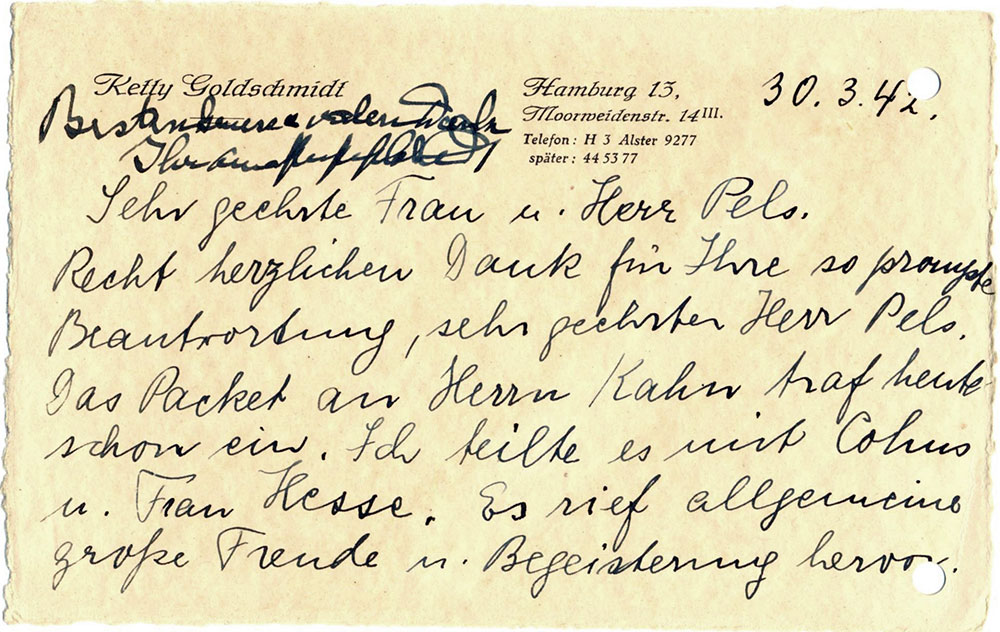 Ketty Goldschmidt
Hamburg 13,
Moorweidenstr. 14 III.
Telefon: H 3 Alster 9277
später: 44 53 77
30. 3. 42.
Besten
Ihr
Sehr geehrte Frau u. Herr Pels.
Recht herzlichen Dank für Ihre so prompte
Beantwortung, sehr geehrter Herr Pels.
Das Packet an Herrn Kahn traf heute
schon ein. Ich teilte es mit Cohns
u. Frau Hesse. Es rief allgemeine
große Freude u. Begeisterung hervor.